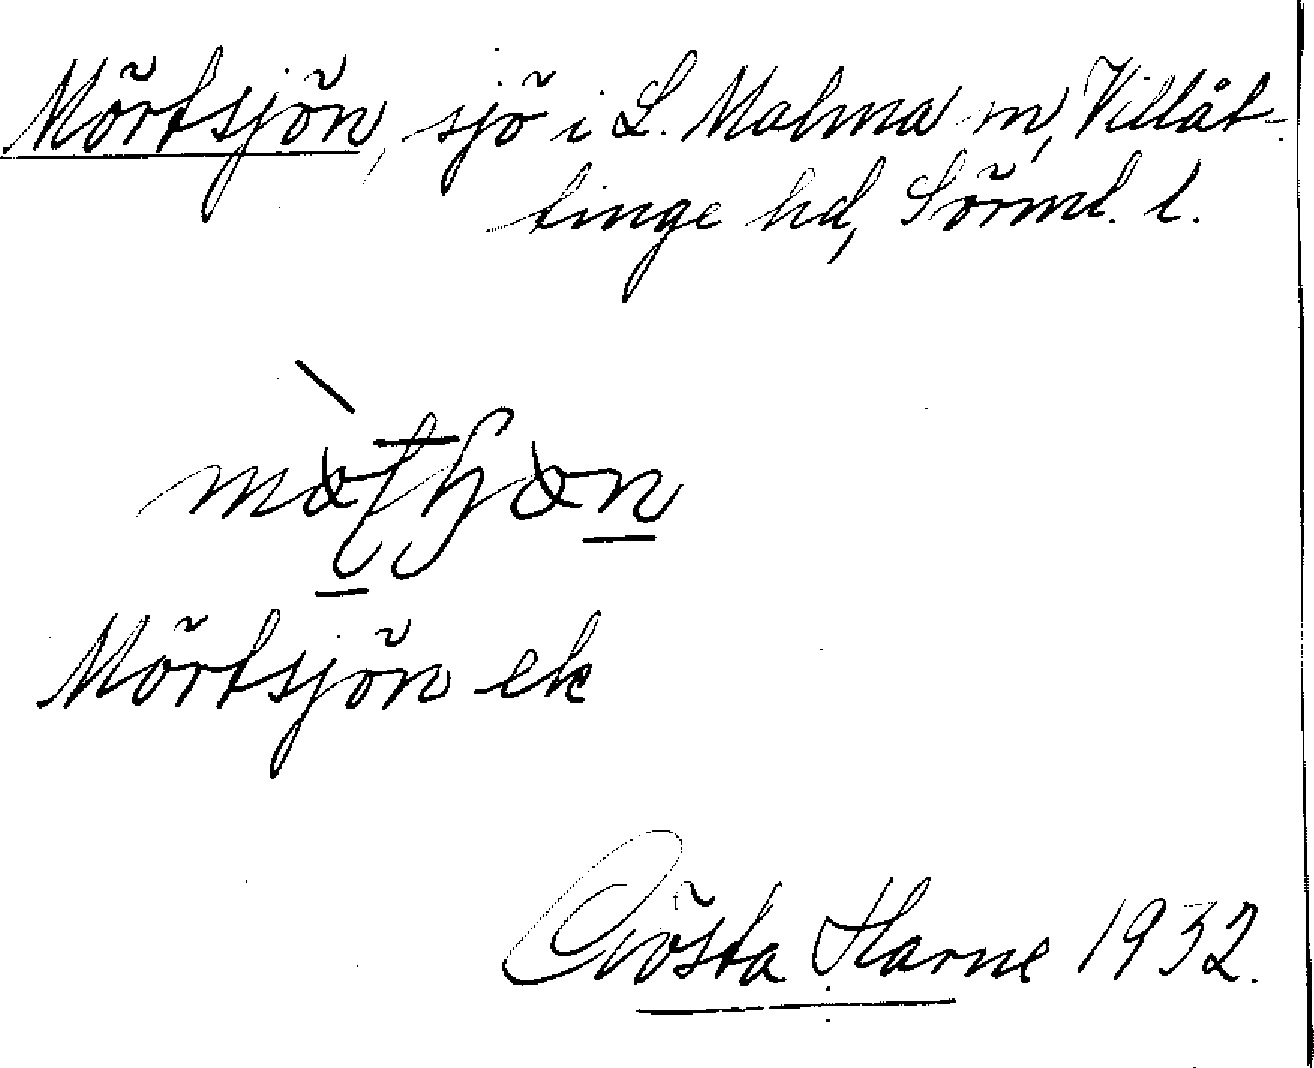 Mörtsjön, sjö i L. Malma m, Villåt-
tinge hd, Sörml. l.
Mörtsjön ek
Gösta Harne 1932.